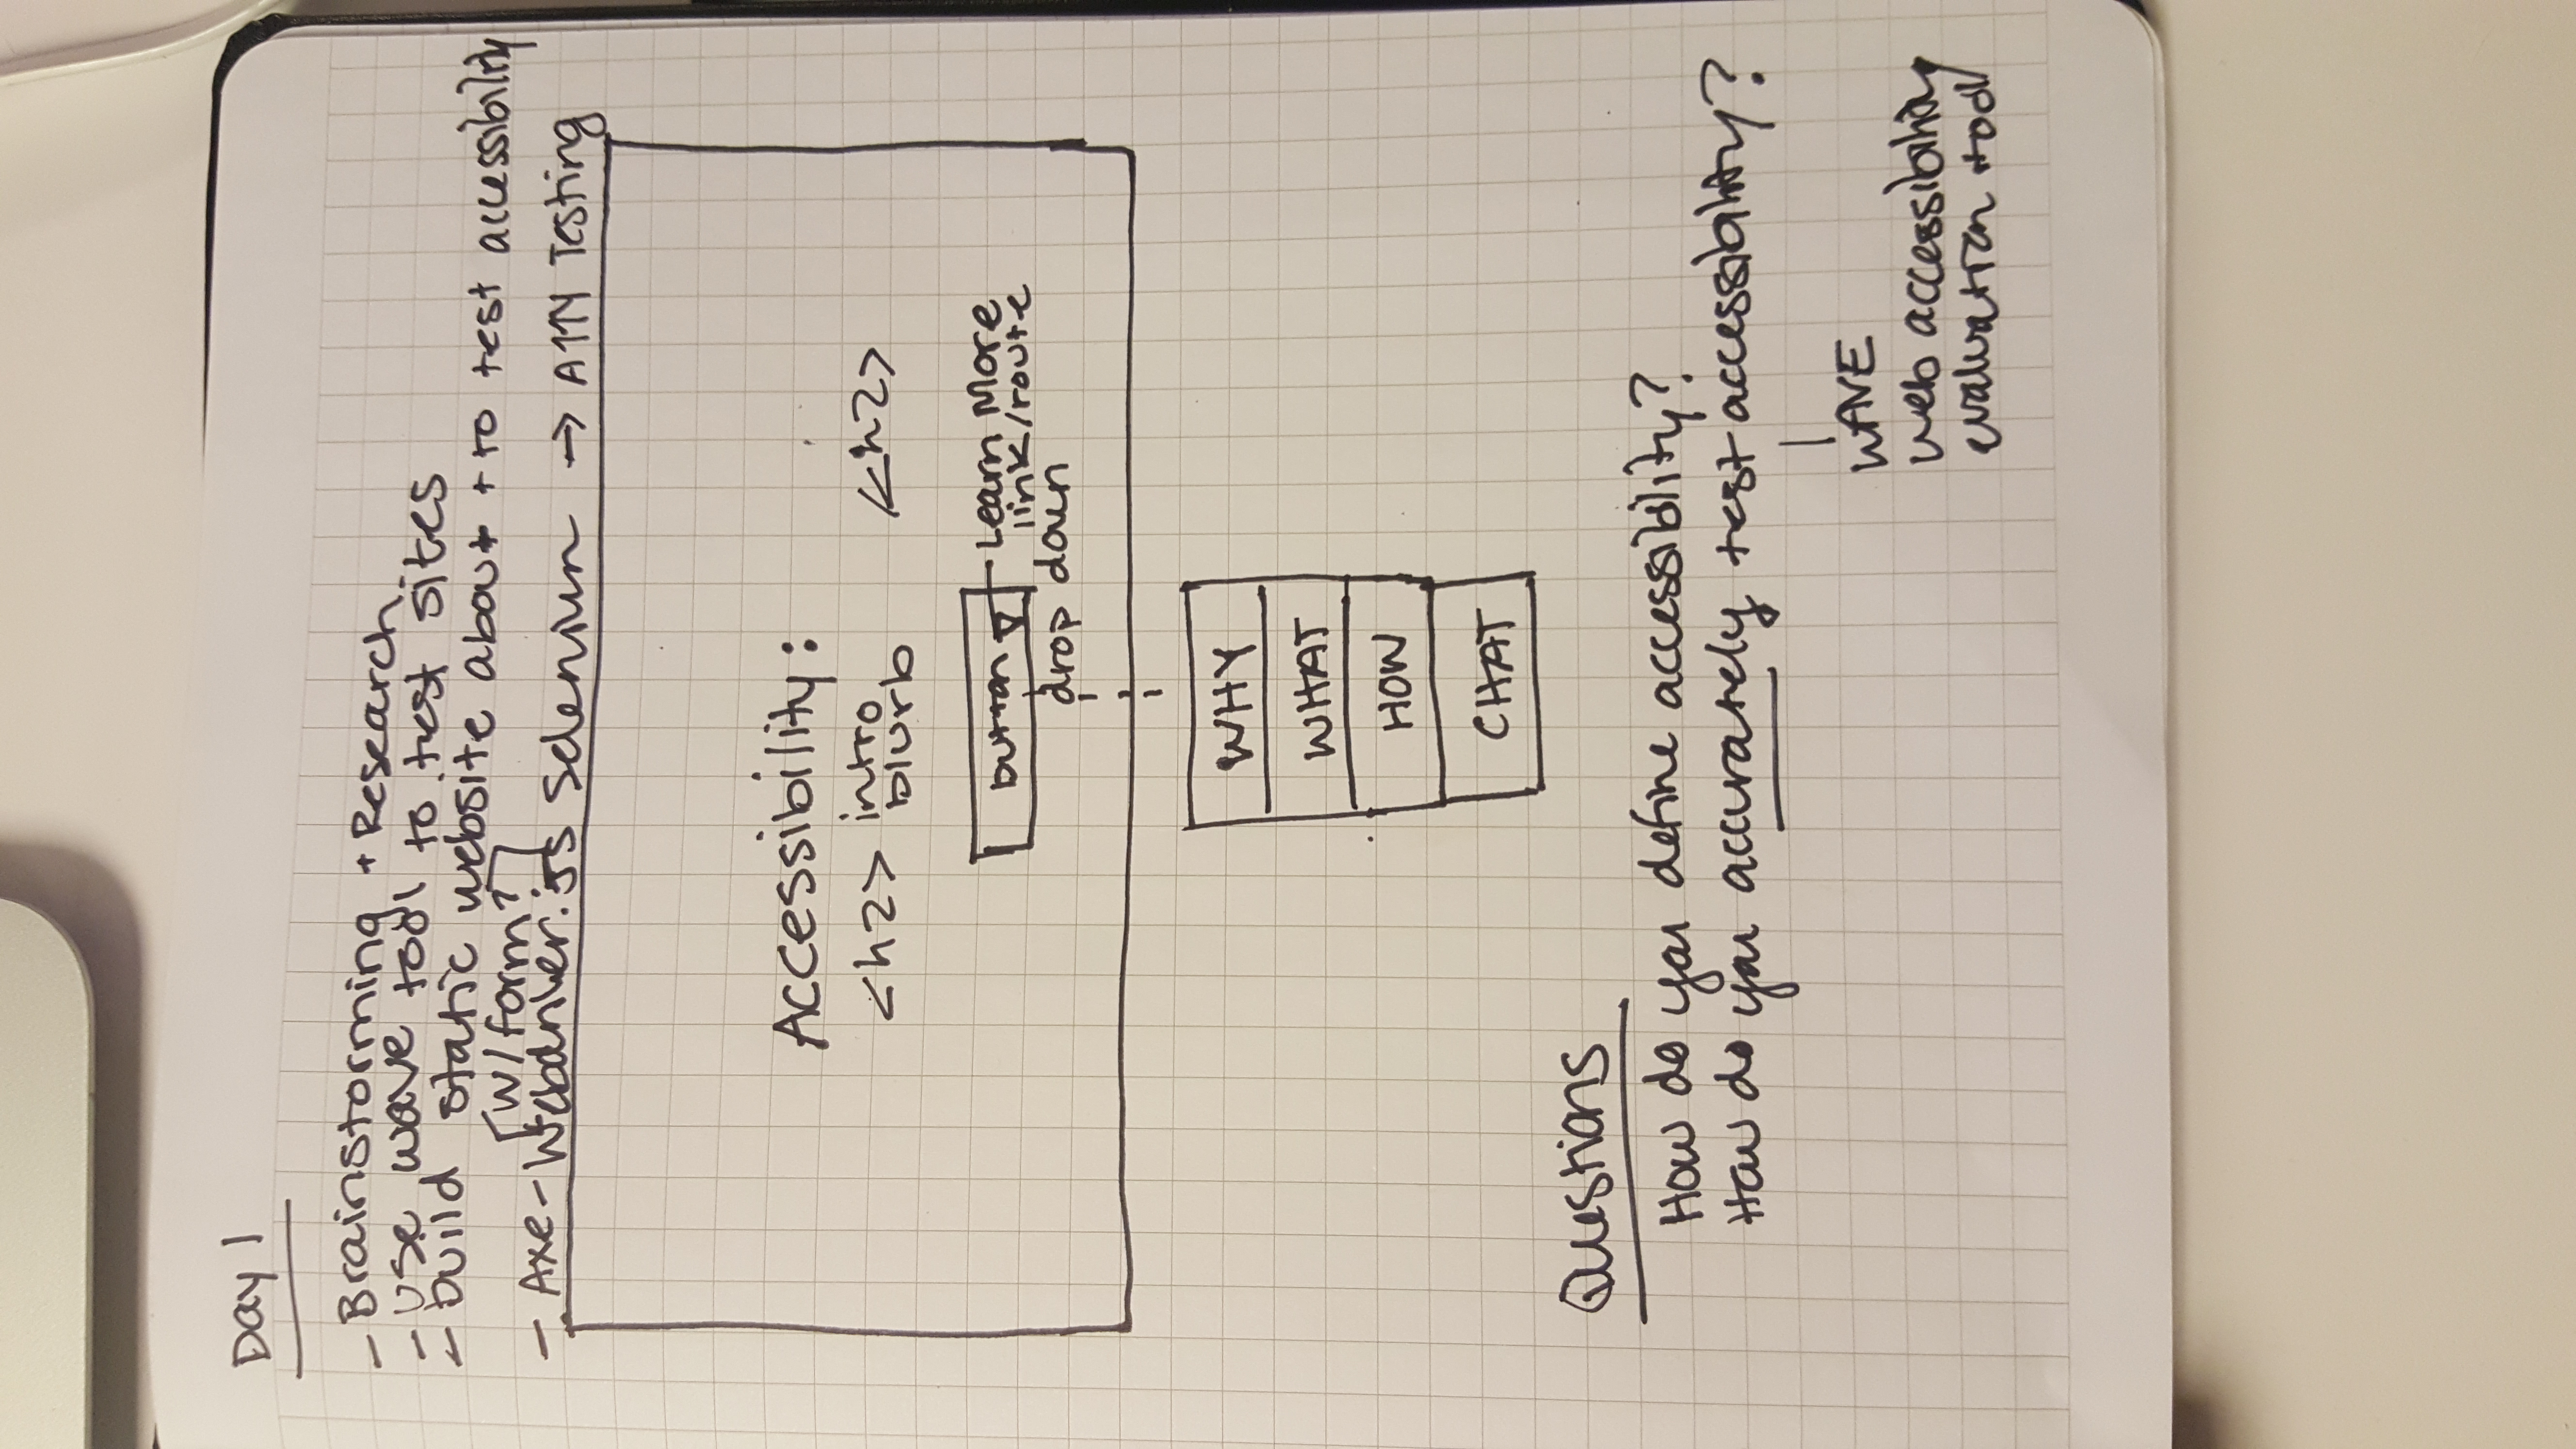 Day 1
- Brainstorming + Research
- use wave tool to test sites
- build static website about + to test accessibility
[w/form?]
- Axe-Webdriver.JS Selenium → A11Y Testing
Accessibility:
<h2> intro blurb </h2>
button ▽ - Learn More
link/route
drop down
WHY
WHAT
HOW
CHAT
Questions
How do you define accessibility?
How do you accurately test accessibility?
WAVE
web accessibility
evaluation tool